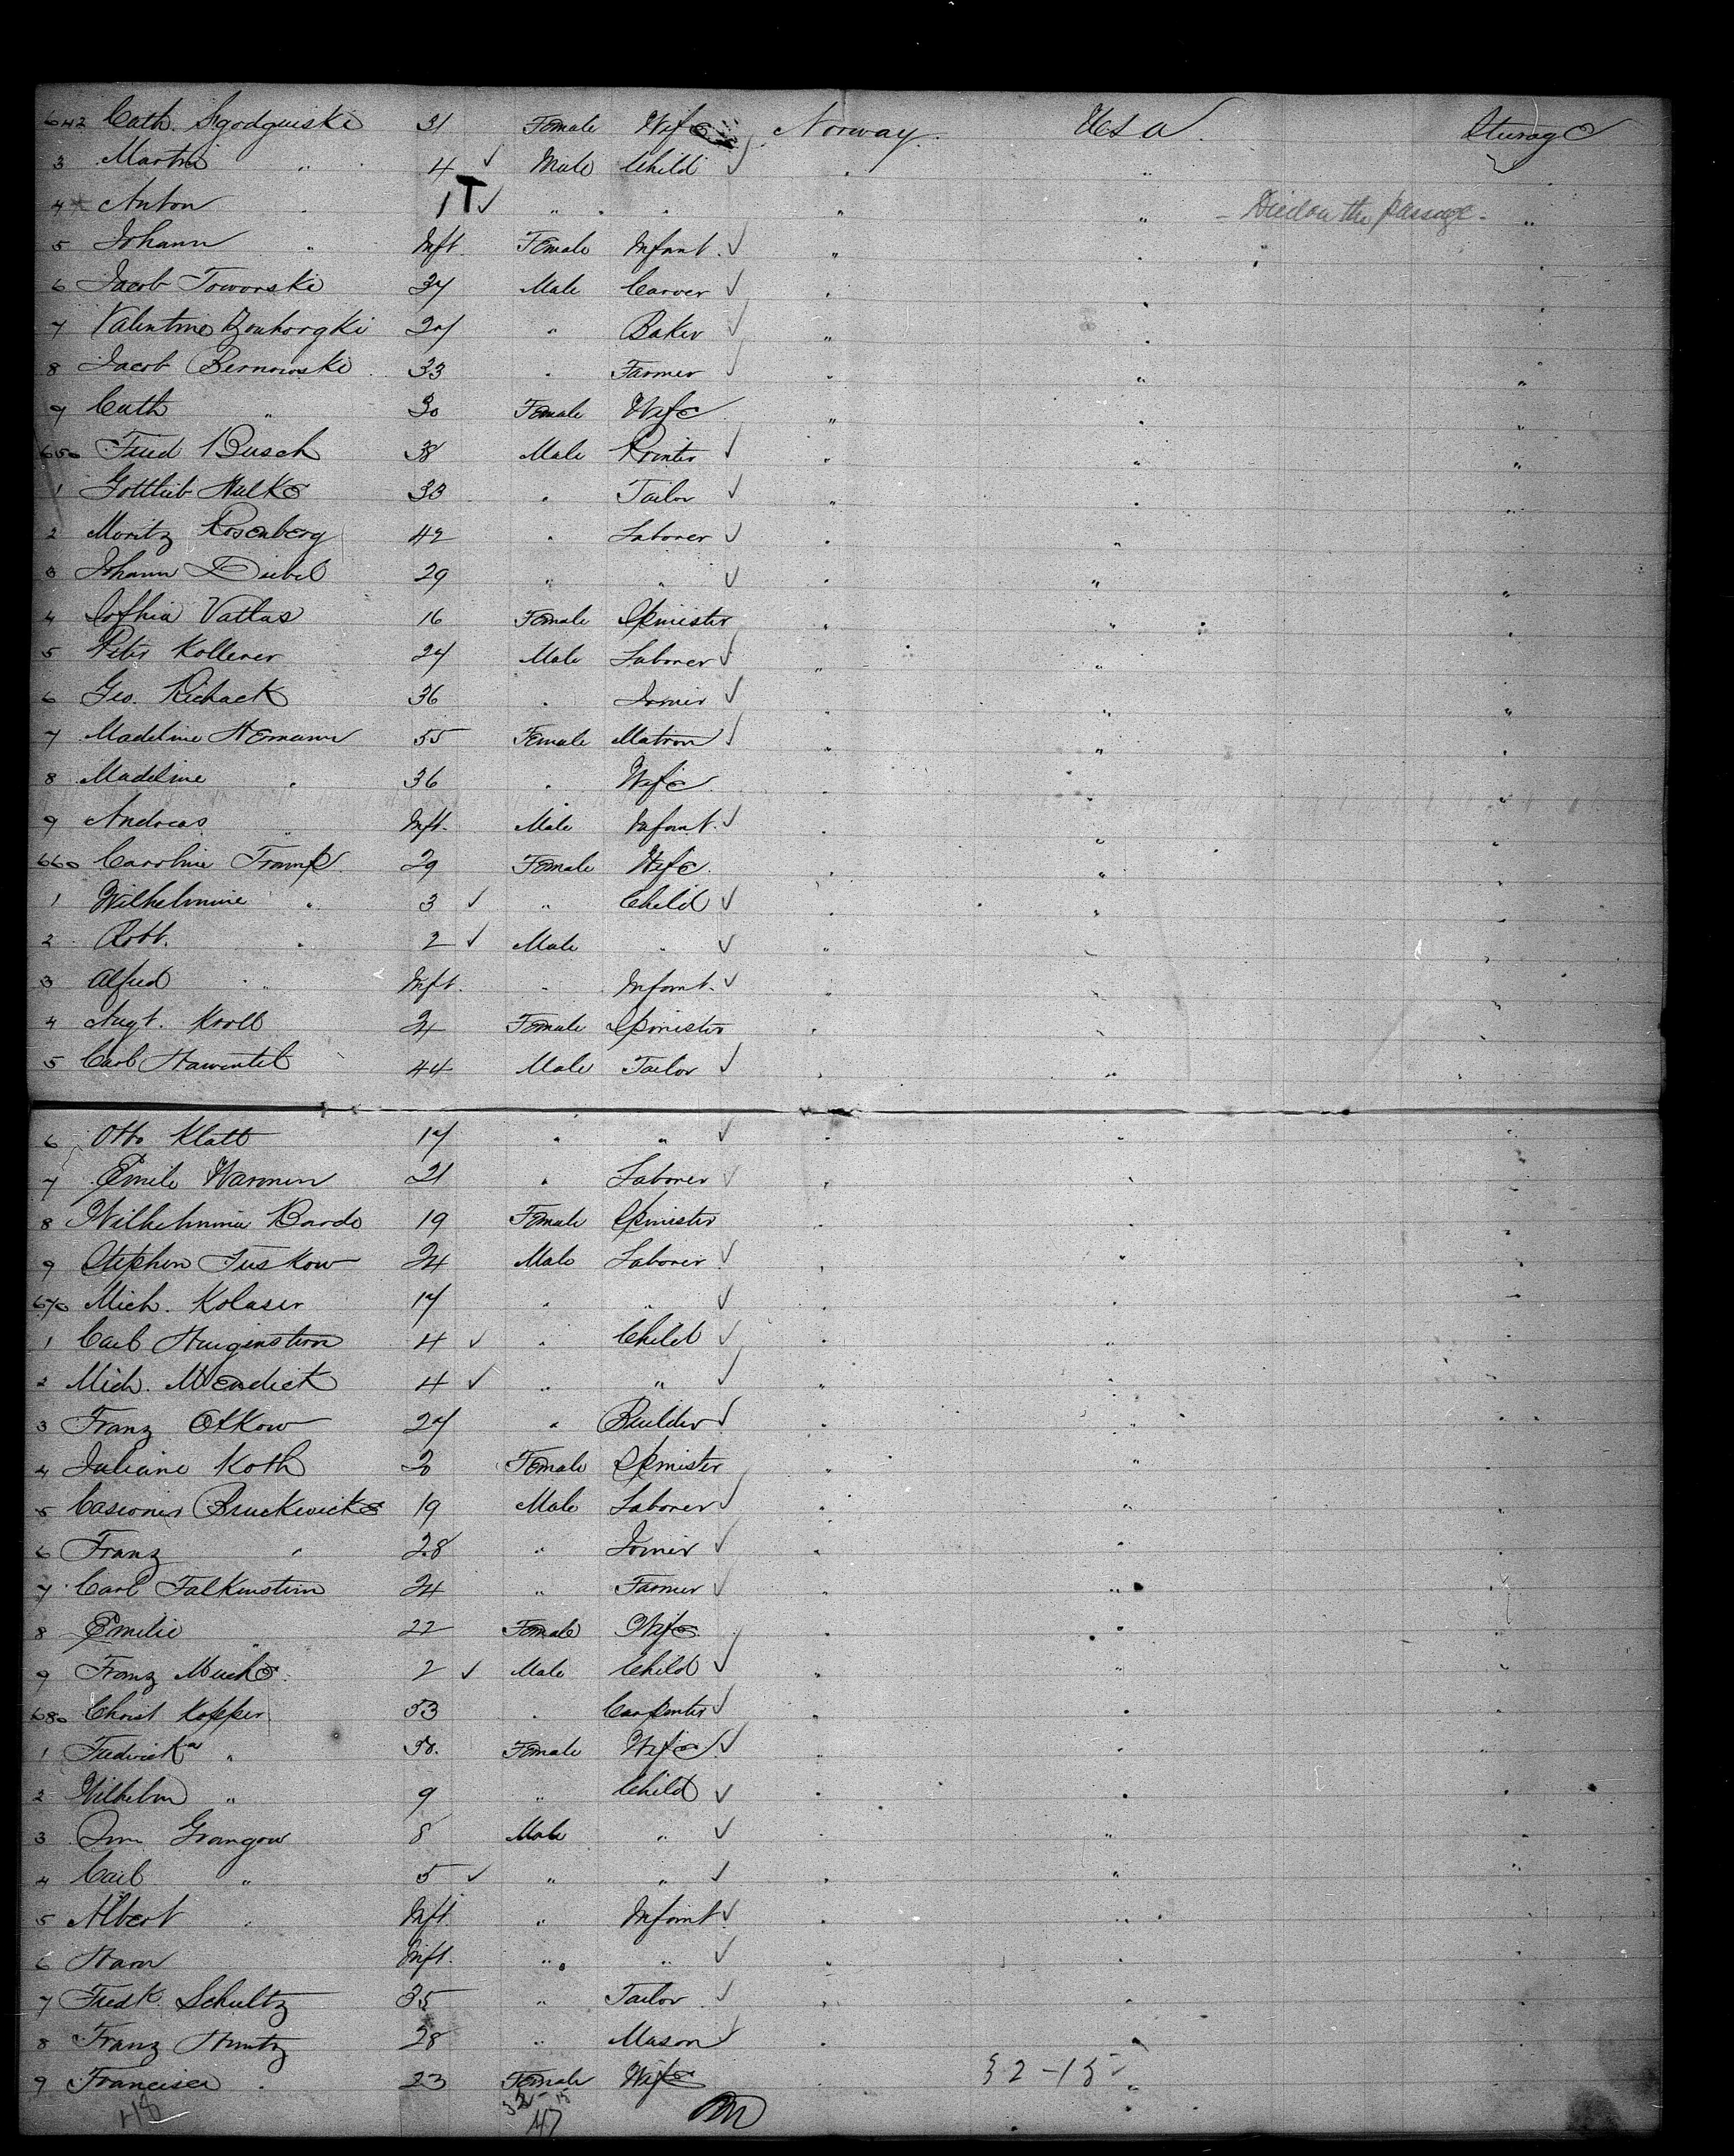 642 Cath. Sgodguiski 31 Female Wife Norway. U S A. Steerage
3 Martin " 4 ✓ Male Child ✓ " " "
4 Anton " 1 T ✓ " " " " - Died on the passage - "
5 Johann " Inft. Female Infant. ✓ " " "
6 Jacob Toworski 27 Male Carver ✓ " " "
7 Valentine 27 " Baker ✓ " " "
8 Jacob Bernowski 33 " Farmer ✓ " " "
9 Cath " 30 Female Wife " " "
650 Fried Busch 38 Male Printer ✓ " " "
1 Gottlieb 33 " Tailor ✓ " " "
2 Moritz Rosenberg 42 " Laborer ✓ " " "
3 Johann Diebel 29 " " ✓ " " "
4 Sophia Vatlas 16 Female Spinister " " "
5 Peter Kollerer 27 Male Laborer ✓ " " "
6 Geo. Richack 36 " Joiner ✓ " " "
7 Madeline Hemann 55 Female Matron ✓ " " "
8 Madeline " 36 " Wife " " "
9 Andreas " Inft. Male Infant. ✓ " " "
660 Caroline 29 Female Wife. " " "
1 Wilhelmine " 3 ✓ " Child ✓ " " "
2 Robt. " 2 ✓ Male " ✓ " " "
3 Alfred " Inft. " Infant. ✓ " " "
4 Augt. Kroll 24 Female Spinister " " "
5 Carl 44 Male Tailor ✓ " " "
6 Otto Klatt 17 " " ✓ " " "
7 Emile Warmin 21 " Laborer ✓ " " "
8 Wilhelmina Bardo 19 Female Spinister " " "
9 Stephen Tuskow 24 Male Laborer ✓ " " "
670 Mich. Kolaser 17 " " ✓ " " "
1 Carl 4 ✓ " Child ✓ " " "
2 Mich. Mendick 4 ✓ " " ✓ " " "
3 Franz Otkow 27 " Builder ✓ " " "
4 Juliane Koth 20 Female Spinister " " "
5 Casimir Bruckwicke 19 Male Laborer ✓ " " "
6 Franz " 28 " Joiner ✓ " " "
7 Carl Falkenstern 24 " Farmer ✓ " " "
8 Emilie " 22 Female Wife " " "
9 Franz Mucke 2 ✓ Male Child ✓ " " "
680 Christ Kopper 33 " Carpenter ✓ " " "
1 Fredericka " 38. Female Wife ✓ " " "
2 Wilhelm " 9 " Child ✓ " " "
3 Grangow 8 Male " ✓ " " "
4 Carl " 5 ✓ " " ✓ " " "
5 Albert " Inft. " Infant ✓ " " "
6 Inft. " " ✓ " " "
7 Fredk. Schultz 35 " Tailor ✓ " " "
8 Franz 28 " Mason ✓ " " "
9 Francisca " 23 Female Wife " 32-15 "
48 32-15
47